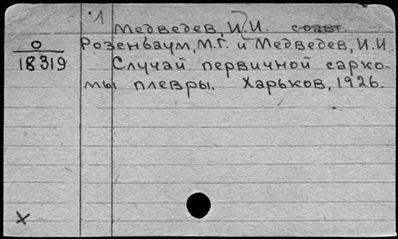 1
Медведев, И.И. соавт.
О
18319
Розенбаум, М.Г. и Медведев, И.И.
Случай первичной сарко-
мы плевры. Харьков, 1926.
X